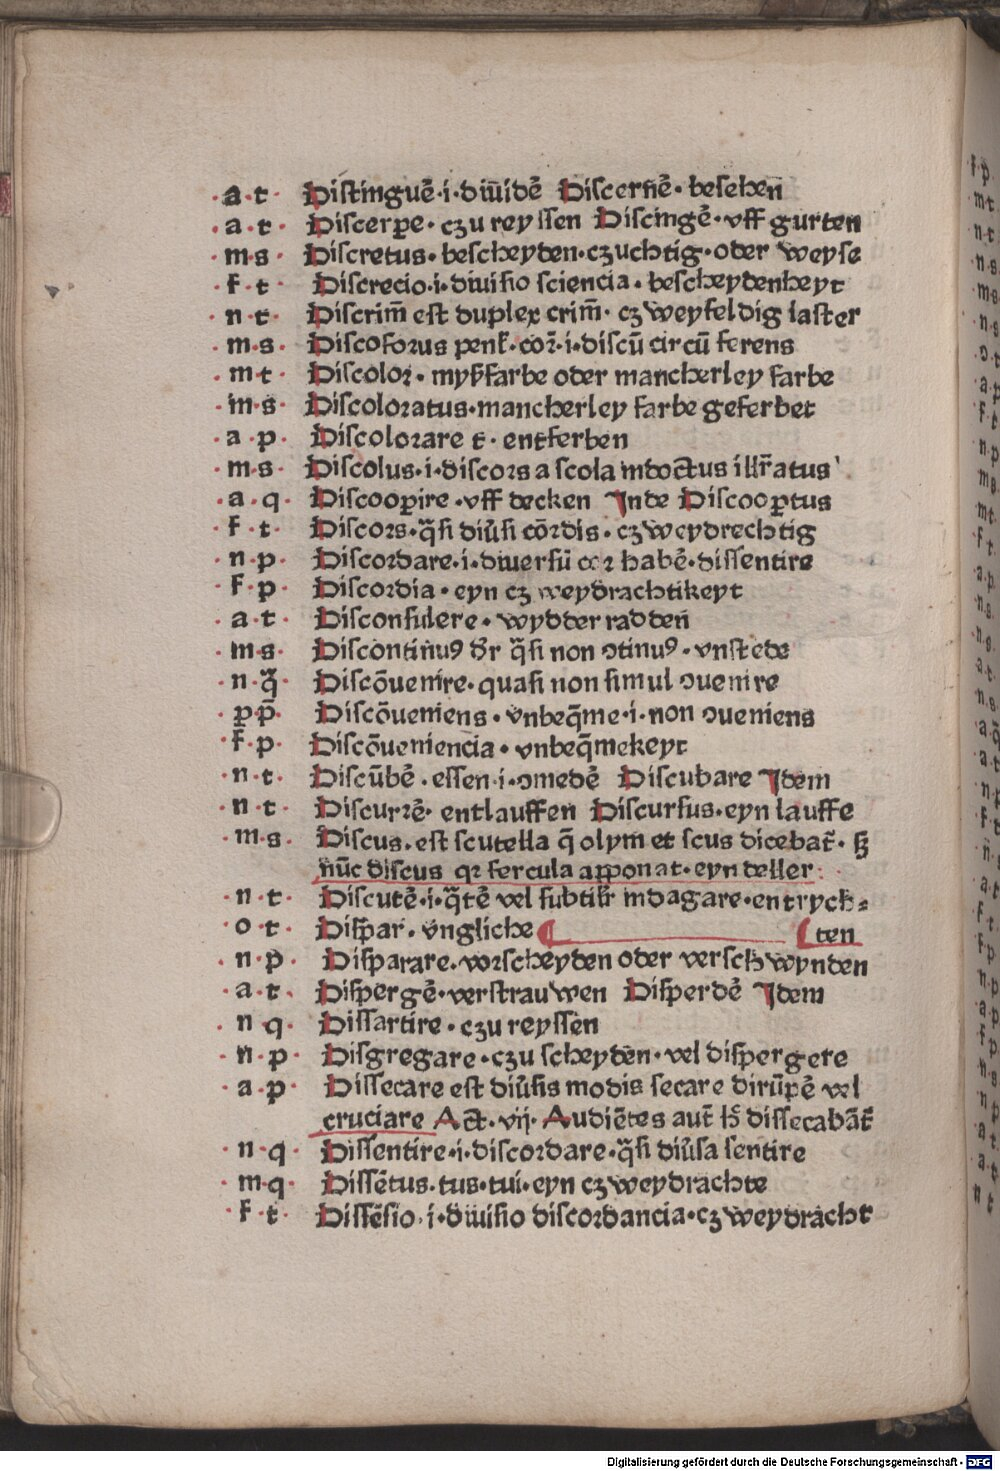 ·a·t· Distinguē·i·diuidē Discernē·besehen
·a·t· Discerpe·czu reyssen Discingē·vff gurten
·m·s· Discretus·bescheyden·czuchtig·oder weyse
·f·t· Discrecio·i·diuisio sciencia·bescheydenheyt
·n·t· Discrim̄ est duplex crim̄·czweyfeldig laster
·m·s· Discoforus
·m·t· Discolor·mysfarbe oder mancherley farbe
·m·s· Discoloratus·mancherley farbe geferbet
·a·p· Discolorare t·entferben
·m·s· Discolus·i·discors a scola indoctus illr̄atus
·a·q· Discooꝑire·vff decken Inde Discooꝑtus
·f·t· Discors·q̄si diūsi cōrdis·czweydrechtig
·n·p· Discordare·i·diuersū cor habē·dissentire
·f·p· Discordia·eyn czweydrachtikeyt
·a·t· Disconsulere·wydder radden̄
·m·s· Discontinuꝰ dr̄ q̄si non ↄtinuꝰ·vnstede
·n·q̄· Discōuenire·quasi non simul ↄuenire
·ꝑp̄· Discōueniens·vnbeq̄me·i·non ↄueniens
·f·p· Discōueniencia·vnbeq̄mekeyt
·n·t· Discūbē·essen·i·ↄmedē Discubare Idem
·n·t· Discurrē·entlauffen Discursus·eyn lauffe
·m·s· Discus·est scutella q̄ olym et scus dicebat̄·sꝫ
nūc discus qꝛ fercula apponat·eyn teller·
·n·t· Discutē·i·q̄tē vel subtilr̄ indagare·entrych⸗
·o·t· Dispar·vngliche ten
·n·p· Disparare·vorscheyden oder verschwynden
·a·t· Dispergē·verstrauwen Disperdē Idem
·n·q· Dissartire·czu reyssen
·n·p· Disgregare·czu scheyden·vel dispergere
·a·p· Dissecare est diūsis modis secare dirūpē vel
cruciare Act·vij·Audiētes aut̄ dissecabāt̄
·n·q· Dissentire·i·discordare·q̄si diūsa sentire
·m·q· Dissētus·tus·tui·eyn czweydrachte
·f·t· Dissēsio·i·diuisio discordancia·czweydracht
Digitalisierung gefördert durch die Deutsche Forschungsgemeinschaft - DFG